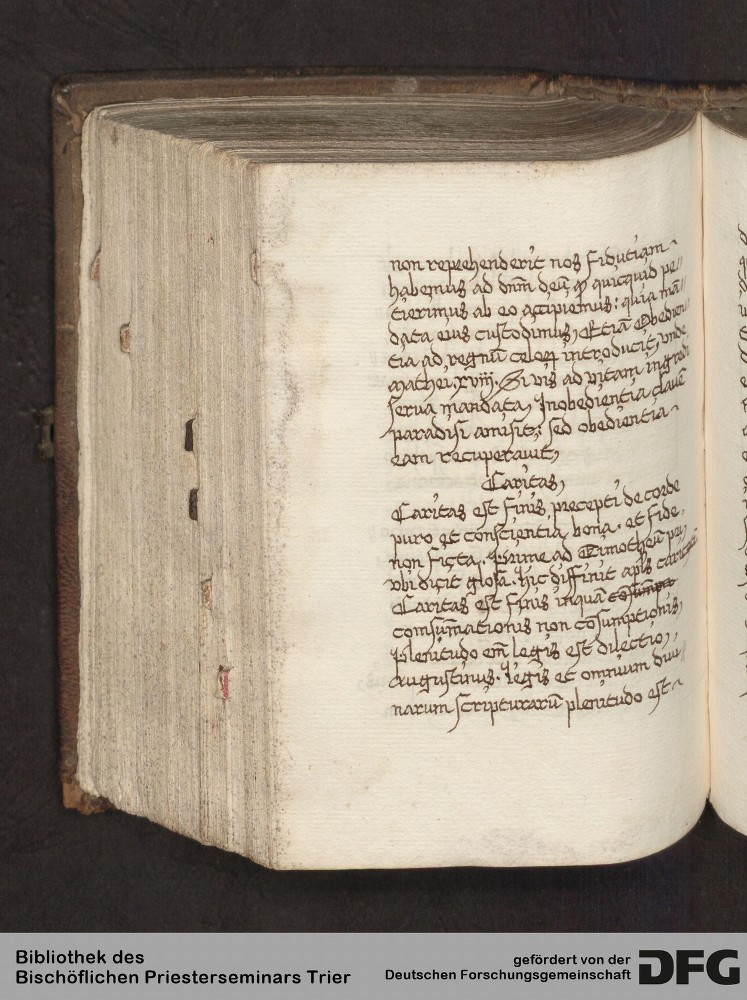 non reprehenderit nos fidutiam
habemus ad dn̄m deū qͥ quicquid pe//
tierimus ab eo accipiemus: quia mā//
data eius custodimus, Etiā Obedien
tia ad regnū celoꝝ introducit, vnde
Mathei. xviiij. Si vis ad vitam ingredi
serua mandata, Inobedientia clauē
paradisi amisit; sed obedientia
eam recuperauit,
Caritas,
Caritas est finis precepti de corde
puro et conscientia bona. et fide.
non ficta. Prime ad Timotheū pri,
vbi dicit glosa. hic diffinit apl̄s caritatē
Caritas est finis inquā
comsūmationis non cōsumptionis,
Plenitudo em̄ legis est dilectio,,
Augustinus. legis et omnium diui
narum scripturarū plenitudo est
Bibliothek des
Bischöflichen Priesterseminars Trier
gefördert von der
Deutschen Forschungsgemeinschaft
DFG